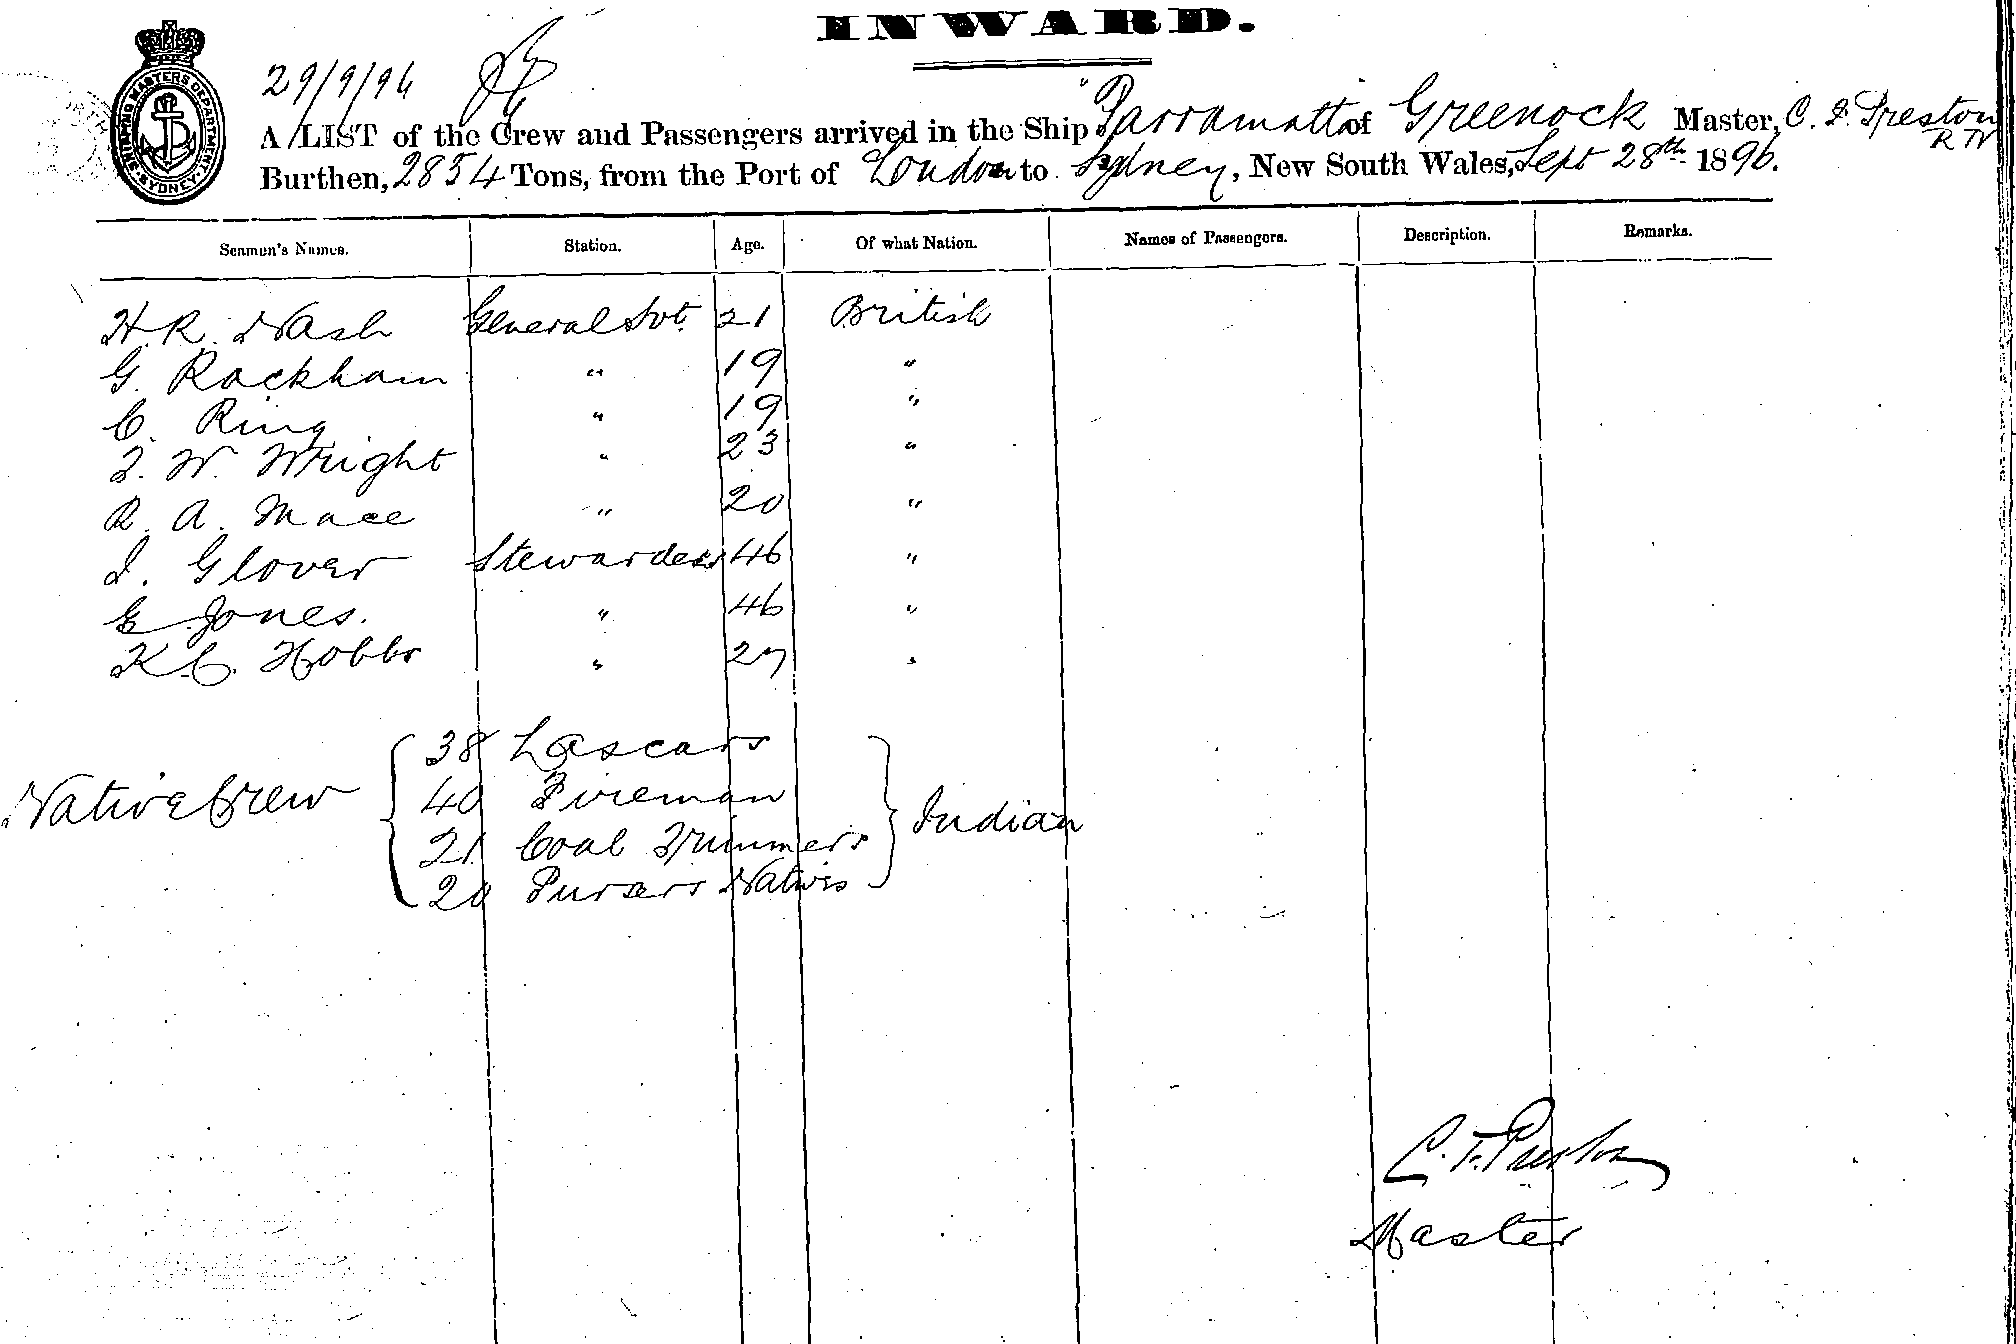 INWARD.
29/9/96
SHIPPING MASTERS DEPARTMENT SYDNEY
A LIST of the Crew and Passengers arrived in the Ship "Parramatta of Greenock Master, C. F. Preston
R N
Burthen, 2854 Tons, from the Port of London to Sydney, New South Wales, Sept 28th 1896.
Seamen's Names. Station. Age. Of what Nation. Names of Passengers. Description. Remarks.
H. R. Nash General Svt. 21 British
G. Rackham " 19 "
C. Ring " 19 "
F. W. Wright " 23 "
R. A. Mace " 20 "
I. Glover Stewardess 46 "
E. Jones. " 46 "
K. C. Hobbs " 27 "
38 Lascars
40 Fireman
Native Crew Indian
21 Coal Trimmers
20 Pursers Natives
C. F. Preston
Master